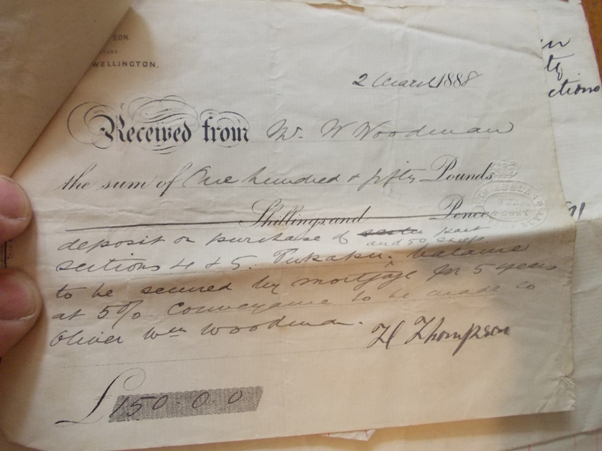 SON
WELLINGTON.
2 March 1888
Received from Mr. W Woodman
the sum of One hundred & fifty Pounds
Shillings and Pence
deposit on purchase of part
sections 4 & 5. Pukaku. balance
to be secured by mortgage for 5 years
at 5% Conveyance to be made to
Oliver Wm Woodman.
H Thompson
£150.0.0
ctions